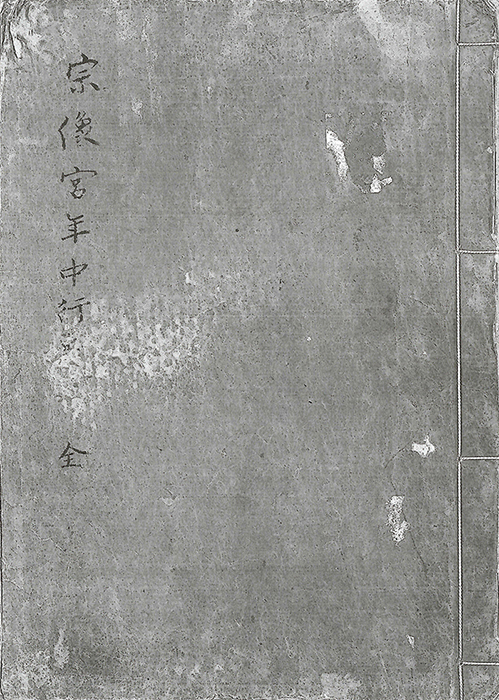 宗像宮年中行
全